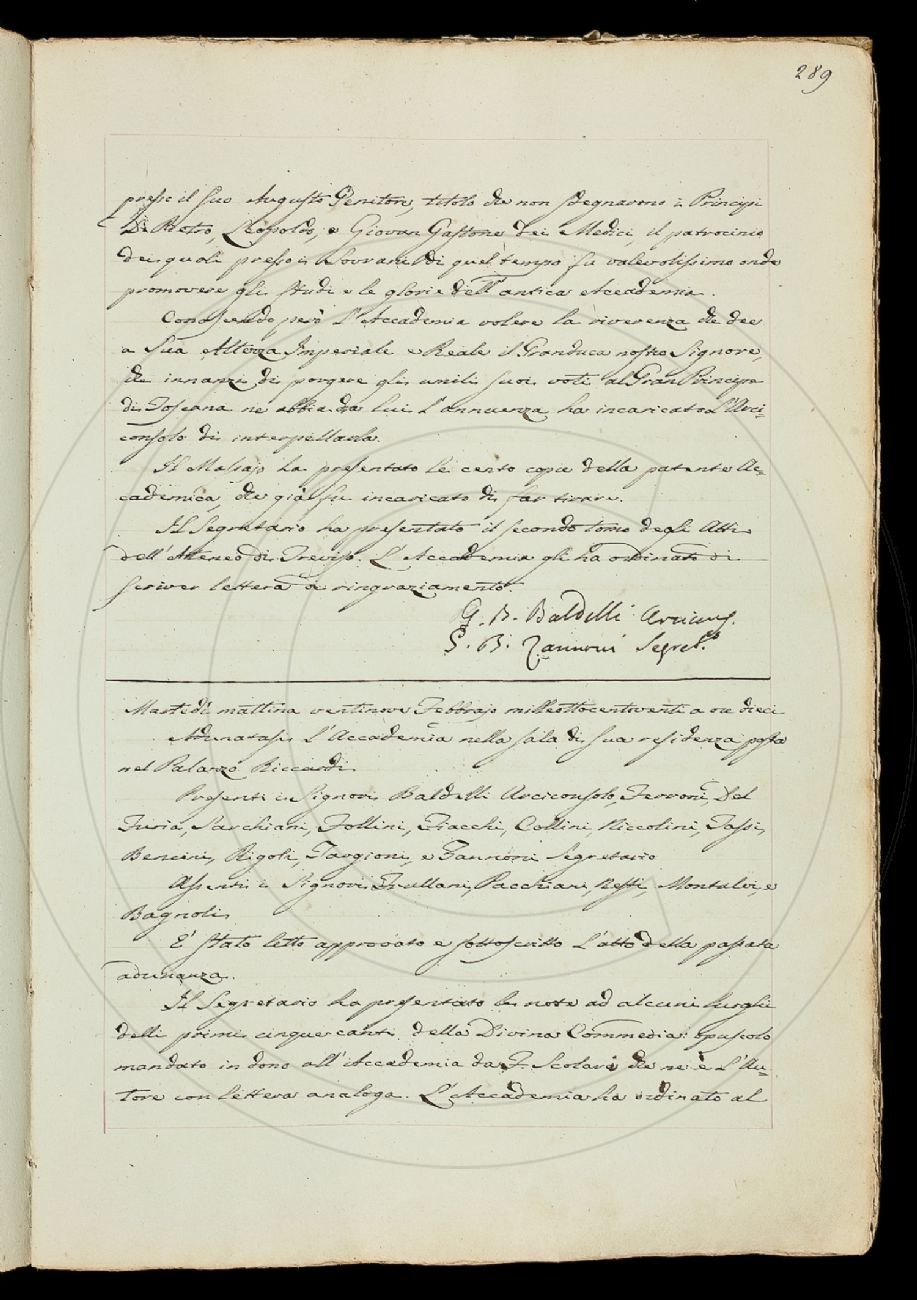 289
presso il suo Augusto Genitore, titolo che non sdegnarono i Principi
Don Pietro, Leopoldo, e Giovan Gastone dei Medici, il patrocinio
dei quali presso i Sovrani di quel tempo fu valevolissimo onde
promovere gli studi e le glorie dell'antica Accademia.
Conoscendo però l'Accademia volere la riverenza che dee
a Sua Altezza Imperiale e Reale il Granduca nostro Signore,
che innanzi di porgere gli umili suoi voti al Gran Principe
di Toscana ne abbia da lui l'annuenza ha incaricato l'Arci-
consolo di interpellarla.
Il Massajo ha presentato le cento copie della patente Ac-
cademica, che già fu incaricato di far tirare.
Il Segretario ha presentato il secondo tomo degli Atti
dell'Ateneo di Treviso. L'Accademia gli ha ordinato di
scriver lettera di ringraziamento.
G. B. Baldelli Arcicons.
G. B. Zannoni Segret.º
Martedì mattina ventinove Febbrajo milleottocentoventi a ore dieci
Adunatasi l'Accademia nella sala di sua residenza posta
nel Palazzo Riccardi.
Presenti i Signori Baldelli Arciconsolo, Ferroni, Del
Furia, Sarchiani, Follini, Fiacchi, Collini, Niccolini, Tassi,
Bencini, Rigoli, Targioni, e Zannoni Segretario
Assenti i Signori Frullani, Pacchiani, Ressi, Montalvi, e
Bagnoli.
E' stato letto approvato e sottoscritto l'atto della passata
adunanza.
Il Segretario ha presentato le note ad alcuni luoghi
delli primi cinque canti della Divina Commedia: opuscolo
mandato in dono all'Accademia da F. Scolari che ne è l'Au-
tore con lettera analoga. L'Accademia ha ordinato al